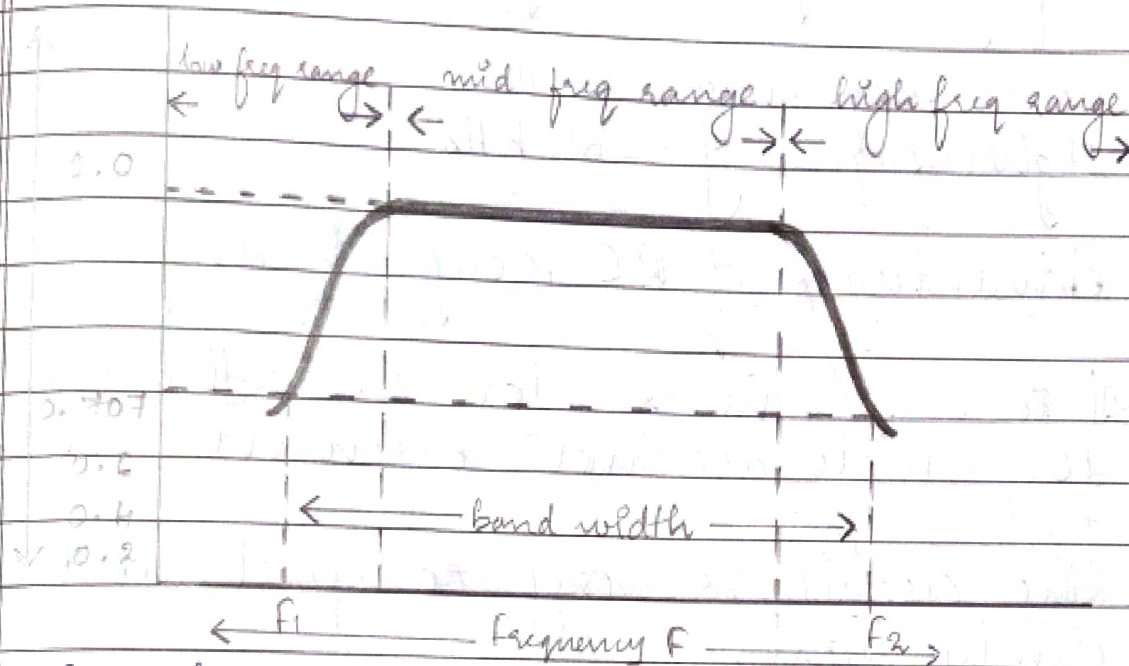 low freq range mid freq range high freq range
1.0
0.707
0.6
0.4
band width
0.2
f1 f2
frequency f